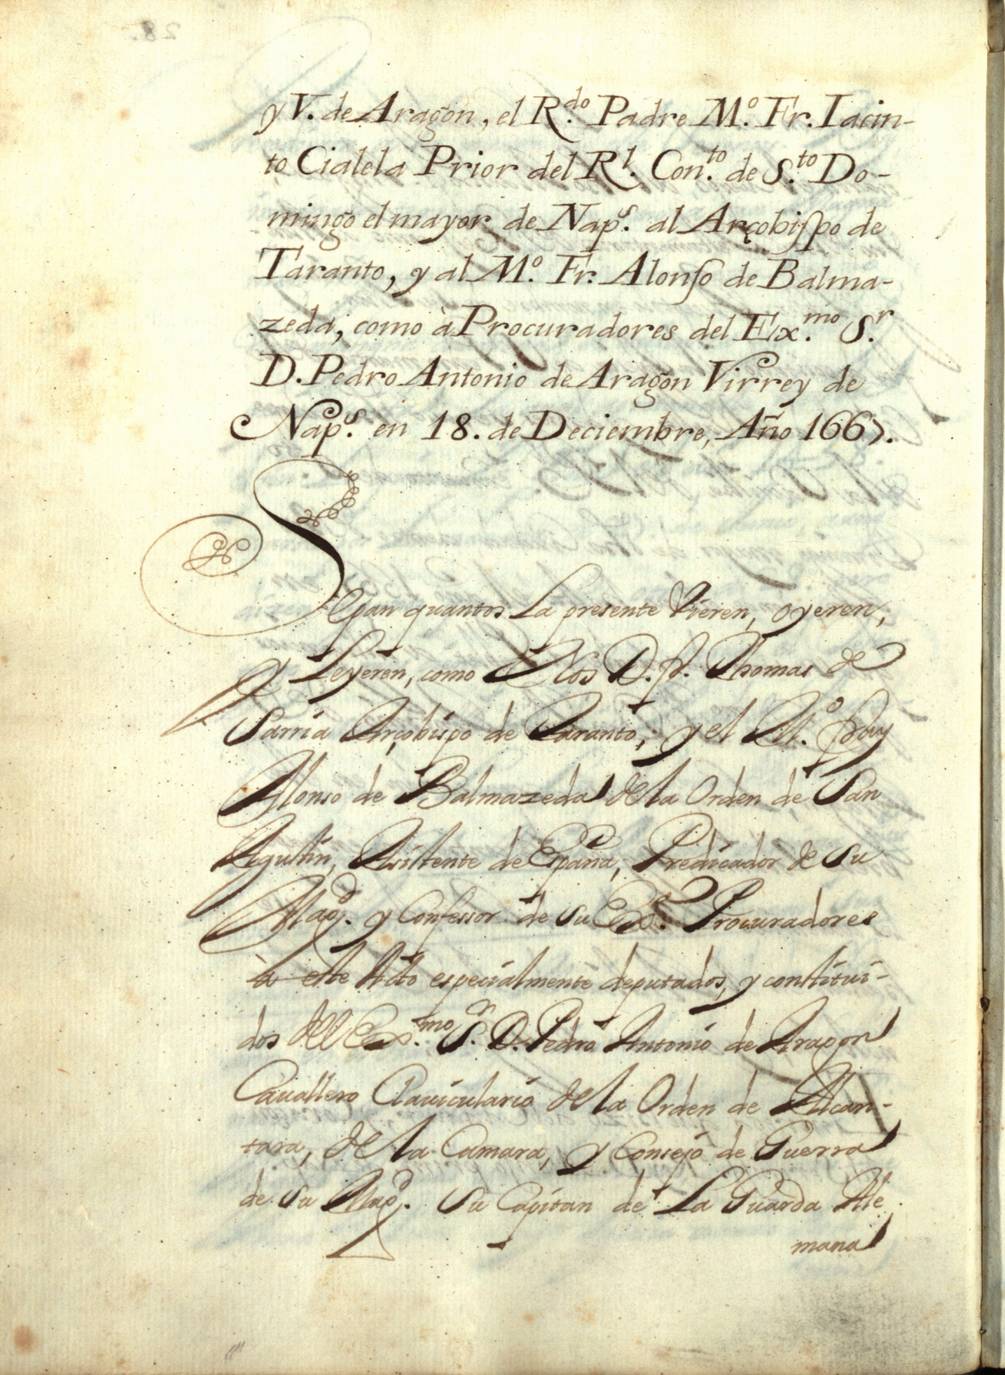 y V. de Aragon, el R.do Padre M.o Fr. Iacin-
to Cialela Prior del R.l Con.to de S.to Do-
mingo el mayor de Nap.s al Arçobiſpo de
Taranto, y al M.o Fr. Alonſo de Balma-
zeda, como à Procuradores del Ex.mo S.r
D. Pedro Antonio de Aragon Virrey de
Nap.s en 18. de Deciembre, Año 1667.
Sepan quantos La presente Vieren, oyeren,
y Leyeren, como Nos D. fr. Thomas de
Sarria Arçobispo de Taranto, y el M.o fray
Alonso de Balmazeda de la Orden de San
Agustin, Assistente de España, Predicador de Su
Mag.d y Confessor de Su Ex.a Procuradores
à este Acto especialmente deputados, y constitui-
dos del Ex.mo S.r D. Pedro Antonio de Aragon
Cauallero Clauiculario de la Orden de Alcan-
tara, de la Camara, y Consejo de Guerra
de Su Mag.d Su Capitan de La Guarda Ale
mana